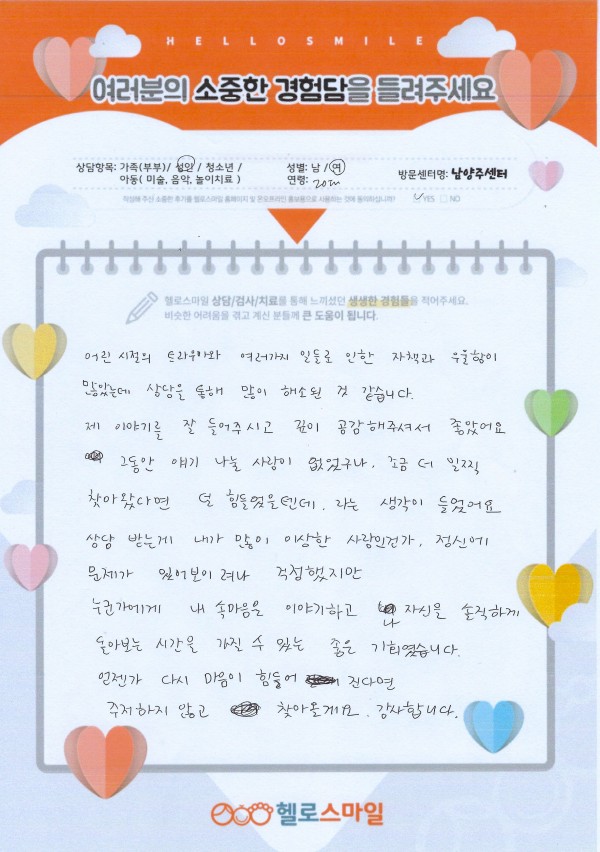 HELLOSMILE
여러분의 소중한 경험담을 들려주세요
상담항목: 가족(부부)/ 성인 / 청소년 /
아동( 미술, 음악, 놀이치료 )
성별: 남 / 여
연령: 20대
방문센터명: 남양주센터
작성해 주신 소중한 후기를 헬로스마일 홈페이지 및 온오프라인 홍보용으로 사용하는 것에 동의하십니까? ✓YES □NO
헬로스마일 상담/검사/치료를 통해 느끼셨던 생생한 경험들을 적어주세요.
비슷한 어려움을 겪고 계신 분들께 큰 도움이 됩니다.
어린 시절의 트라우마와 여러가지 일들로 인한 자책과 우울함이
많았는데 상담을 통해 많이 해소된 것 같습니다.
제 이야기를 잘 들어주시고 깊이 공감해주셔서 좋았어요
그동안 얘기 나눌 사람이 없었구나, 조금 더 일찍
찾아왔다면 덜 힘들었을텐데, 라는 생각이 들었어요
상담 받는게 내가 많이 이상한 사람인건가, 정신에
문제가 있어보이려나 걱정했지만
누군가에게 내 속마음을 이야기하고 나 자신을 솔직하게
돌아보는 시간을 가질 수 있는 좋은 기회였습니다.
언젠가 다시 마음이 힘들어 진다면
주저하지 않고 찾아올게요. 감사합니다.
헬로스마일